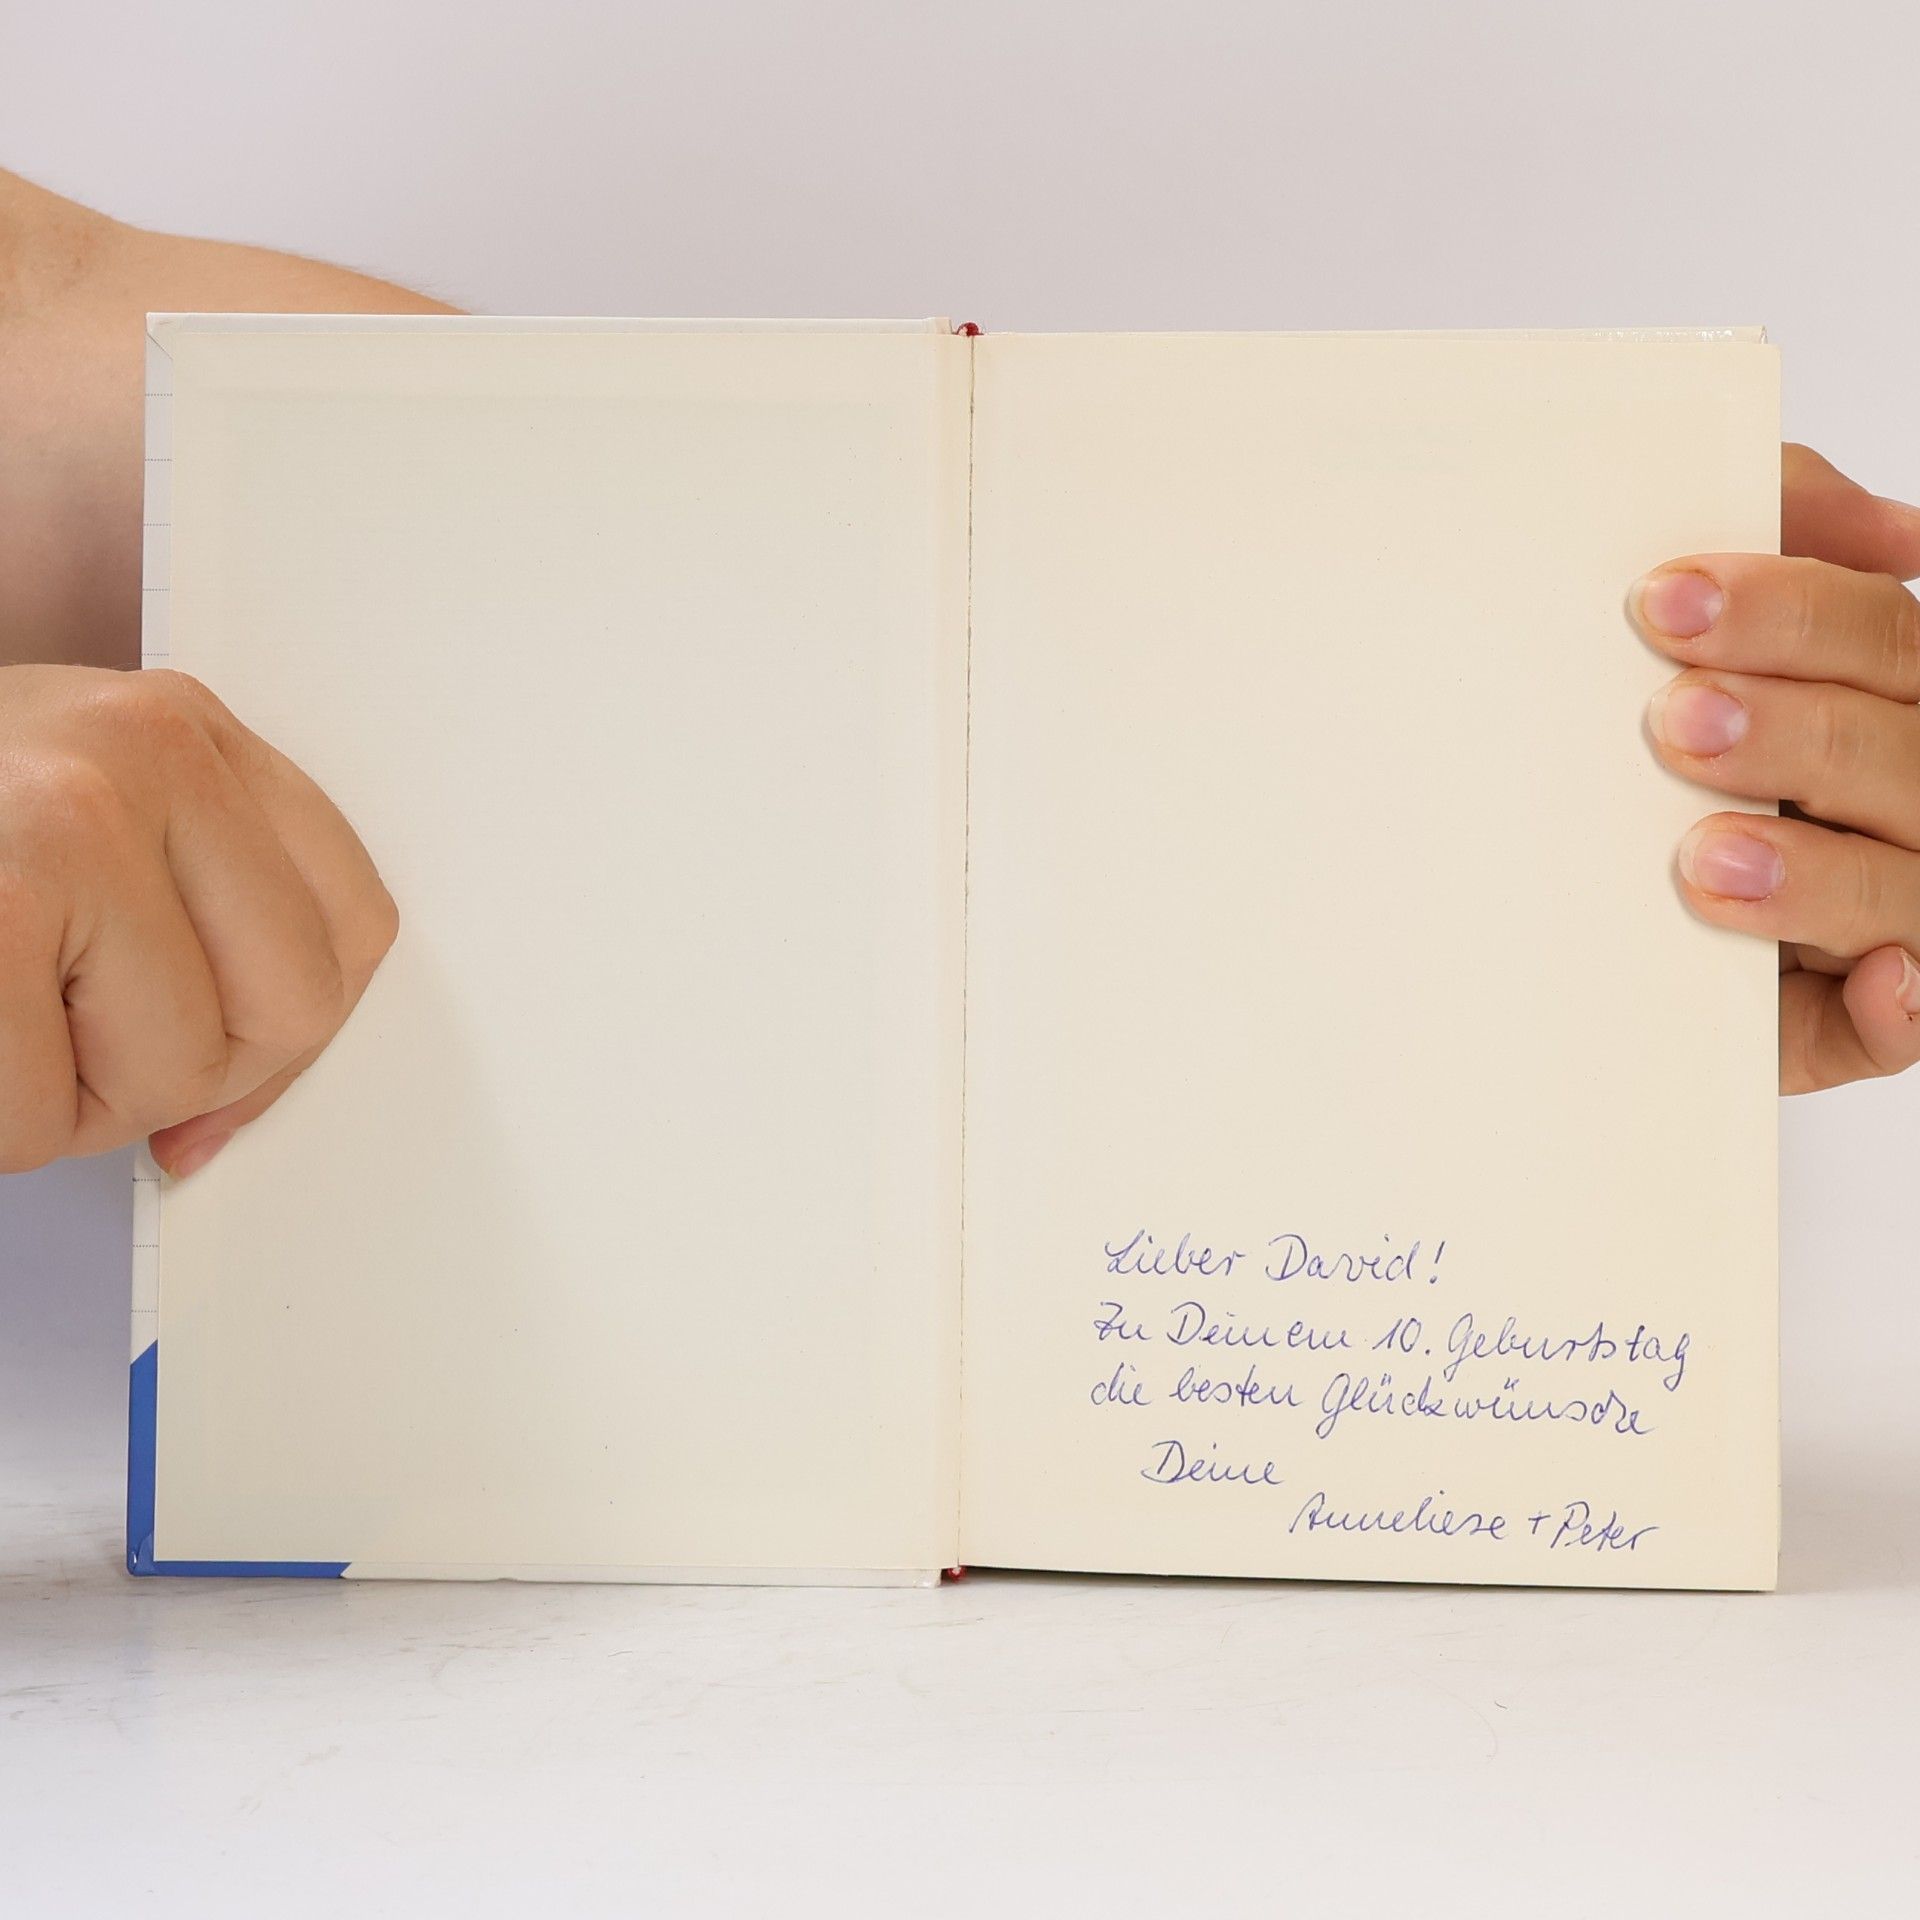 Lieber David!
Zu Deinem 10. Geburtstag
die besten Glückwünsche
Deine
Anneliese + Peter